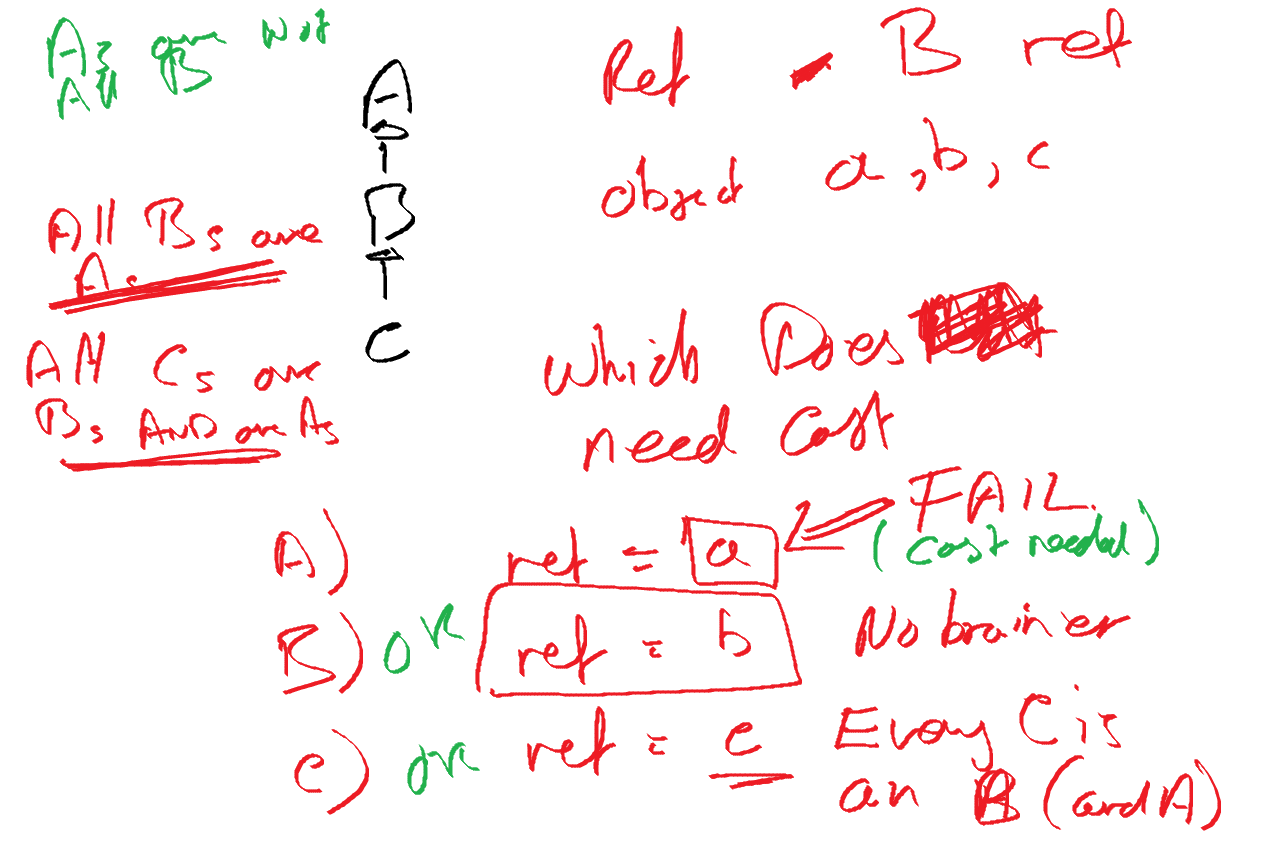 As are not
All B
All Bs are
As
All Cs are
Bs AND are As
A
B
C
Ref - B ref
object a, b, c
which Does
need Cast
A) ref = a FAIL.
(cast needed)
B) OK ref = b No brainer
C) OK ref = c Every C is
an B (and A)